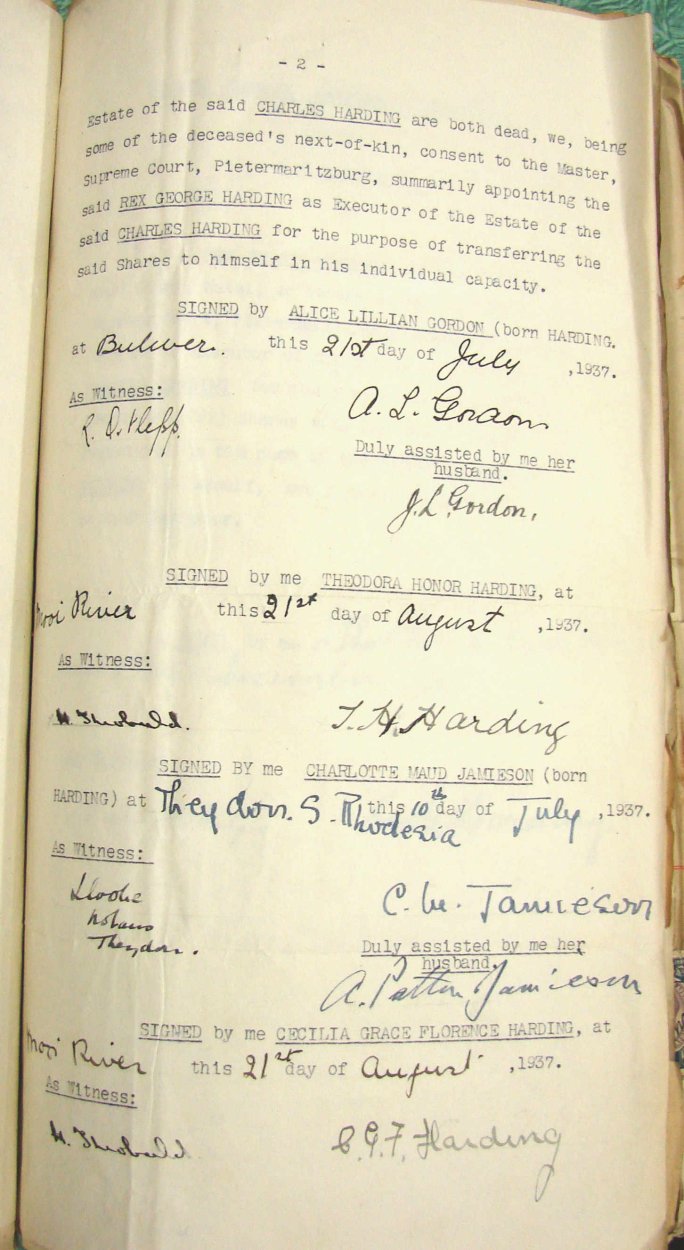 - 2 -
Estate of the said CHARLES HARDING are both dead, we, being
some of the deceased's next-of-kin, consent to the Master,
Supreme Court, Pietermaritzburg, summarily appointing the
said REX GEORGE HARDING as Executor of the Estate of the
said CHARLES HARDING for the purpose of transferring the
said Shares to himself in his individual capacity.
SIGNED by ALICE LILLIAN GORDON (born HARDING.
at Bulwer. this 21st day of July ,1937.
As Witness:
A. L. Gordon
Duly assisted by me her
husband.
J. L. Gordon.
SIGNED by me THEODORA HONOR HARDING, at
Mooi River this 21st day of August ,1937.
As Witness:
H. Theobald. T. H. Harding
SIGNED BY me CHARLOTTE MAUD JAMIESON (born
HARDING) at Theydon. S. Rhodesia this 10th day of July ,1937.
As Witness:
C. M. Jamieson
Theydon.
Duly assisted by me her
husband.
A. Patton Jamieson
SIGNED by me CECILIA GRACE FLORENCE HARDING, at
Mooi River this 21st day of August ,1937.
As Witness:
H. Theobald C. G. F. Harding